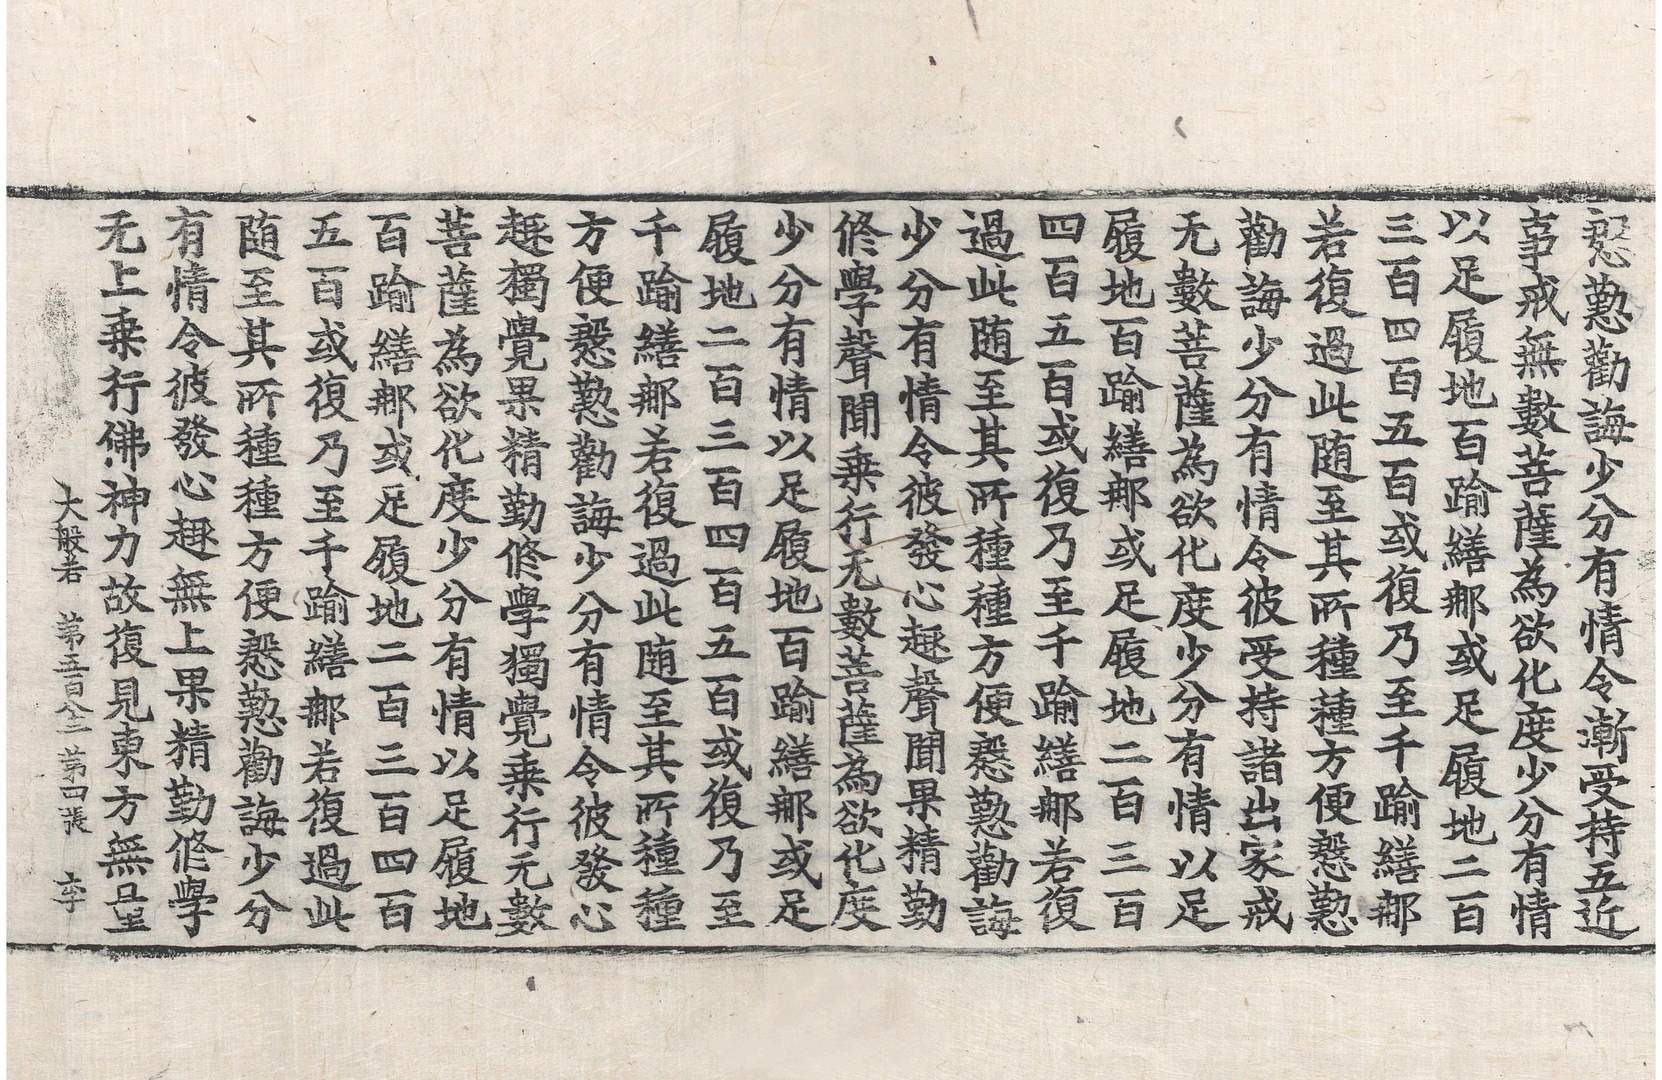 慇懃勸誨少分有情令漸受持五近
事戒無數菩薩為欲化度少分有情
以足履地百踰繕那或足履地二百
三百四百五百或復乃至千踰繕那
若復過此随至其所種種方便慇懃
勸誨少分有情令彼受持諸出家戒
无數菩薩為欲化度少分有情以足
履地百踰繕那或足履地二百三百
四百五百或復乃至千踰繕那若復
過此随至其所種種方便慇懃勸誨
少分有情令彼發心趣聲聞果精勤
修學聲聞乗行无數菩薩為欲化度
少分有情以足履地百踰繕那或足
履地二百三百四百五百或復乃至
千踰繕那若復過此随至其所種種
方便慇懃勸誨少分有情令彼發心
趣獨覺果精勤修學獨覺乗行无數
菩薩為欲化度少分有情以足履地
百踰繕那或足履地二百三百四百
五百或復乃至千踰繕那若復過此
随至其所種種方便慇懃勸誨少分
有情令彼發心趣無上果精勤修學
无上乗行佛神力故復見東方無量
大般若 第五百八十二 第四張 李